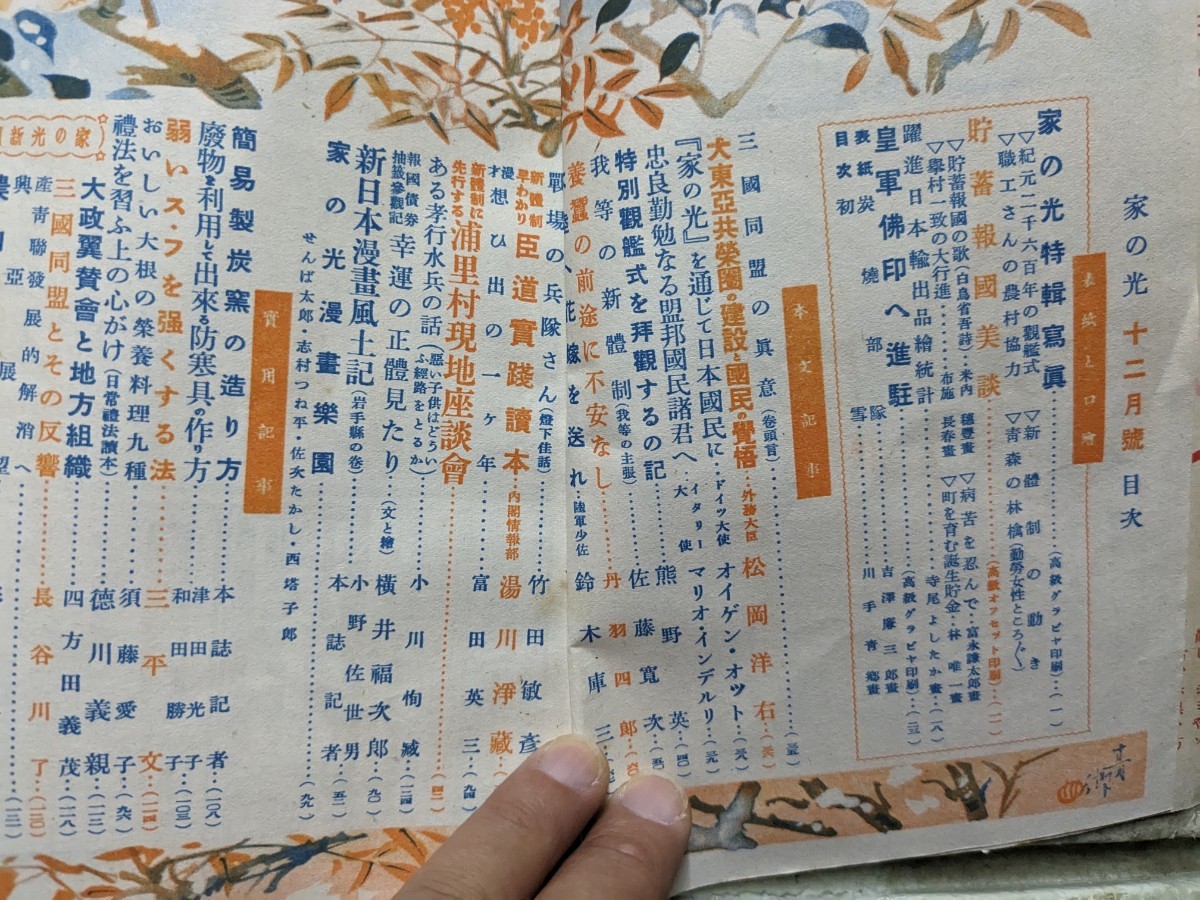 家の光 十二月號 目次
表紙と口繪
家の光特輯寫眞……(高級グラビヤ印刷)…(一)
▽紀元二千六百年の觀艦式 ▽新體制の動き
▽職工さんの農村協力 ▽青森の林檎(勤勞女性ところ〴〵)
貯蓄報國美談……(高級オフセット印刷)…(一一)
▽貯蓄報國の歌(白鳥省吾詩)‥米内穗豊畫 ▽病苦を忍んで‥富永謙太郎畫
▽擧村一致の大行進……布施長春畫 ▽町を育む誕生貯金‥林唯一畫
躍進日本輸出品繪統計……寺尾よしたか畫…(一八)
皇軍佛印へ進駐……(高級グラビヤ印刷)…(二三)
表紙 炭燒部隊……吉澤廉三郎畫
目次 初雪……川手青鄕畫
本文記事
三國同盟の眞意(卷頭言)……(三五)
大東亞共榮圈の建設と國民の覺悟‥外務大臣 松岡洋右‥(三六)
『家の光』を通じて日本國民に‥ドイツ大使 オイゲン・オット‥(三八)
忠良勤勉なる盟邦國民諸君へ‥イタリー大使 マリオ・インデルリ‥(三九)
特別觀艦式を拜觀するの記……熊野英‥(四)
我等の新體制(我等の主張)……佐藤寬次‥(五)
養蠶の前途に不安なし……丹羽四郎‥
戰場へ花嫁を送れ‥陸軍少佐 鈴木庫三
戰場の兵隊さん(燈下佳話)……竹田敏彥
新體制早わかり 臣道實踐讀本‥内閣情報部 湯川淨藏
漫才 想ひ出の一ヶ年……富田英三‥(九四)
新體制に先行する 浦里村現地座談會……(四一)
ある孝行水兵の話(惡い子供はどういふ經路をとるか)……小川恂臧‥(三四)
報國債券抽籤參觀記 幸運の正體見たり……橫井福次郎‥(九〇)
新日本漫畫風土記(岩手縣の卷)……(文と繪)小野佐世男‥(五二)
家の光漫畫樂園……本誌記者‥(九九)
せんば太郎・志村つね平・佐次たかし・西塔子郎
實用記事
簡易製炭窯の造り方……本誌記者‥(一〇八)
廢物を利用して出來る防寒具の作り方……津田光子 和田勝子‥(一〇三)
弱いス・フを强くする法……三平文‥(一一四)
おいしい大根の榮養料理九種……須藤愛子‥(九六)
禮法を習ふ上の心がけ(日常禮法讀本)……德川義親‥(一一三)
家の光新聞
大政翼賛會と地方組織……四方田義茂‥(一一八)
三國同盟とその反響……長谷川了‥(一二〇)
產靑聯發展的解消へ……(一二一)